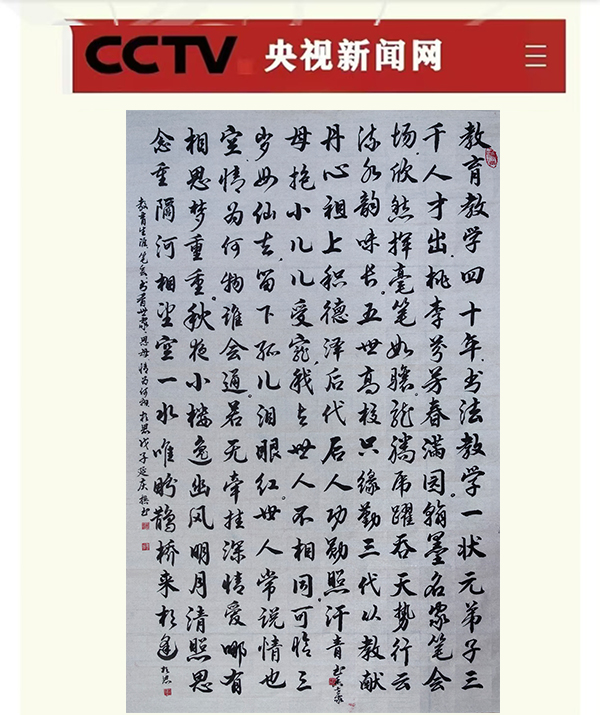 CCTV 央视新闻网
教育教学四十年.书法教学一状元弟子三
千人才出.桃李芬芳春满园.翰墨名家笔会
场.欣然挥毫笔如 龙腾虎跃吞天势行云
流水韵味长.五世高校只缘勤三代以教献
丹心祖上积德泽后代后人功勋照汗青.书香世家
母抱小儿儿受宠.我去世人不相同.可怜三
岁母仙去.留下孤儿泪眼红.世人常说情也
空.情为何物谁会通.若无牵挂深情爱哪有
相思梦重重.秋夜小楼逸幽风明月清照思
念重隔河相望空一水唯盼鹊桥来相逢 相思
教育生涯.笔会.书香世家.思母.情为何物.相思戊子延庆撰书